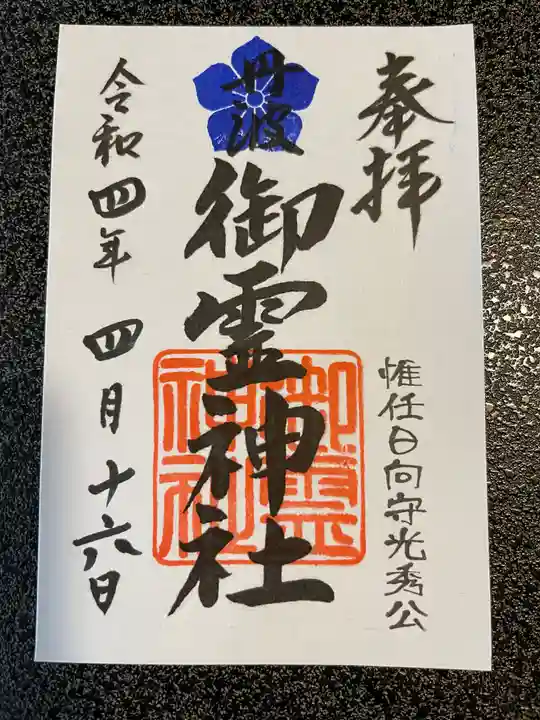 奉拝
惟任日向守光秀公
丹波
御霊神社
御霊
神社
令和四年 四月十六日